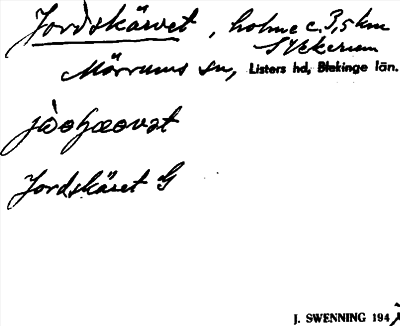 Jordskärvet, holme c. 3,5 km
SV Ekerum
Mörrums sn, Listers hd, Blekinge län.
Jordskäret G
J. SWENNING 194